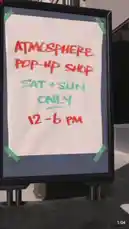 ATMOSPHERE
POP-UP SHOP
SAT + SUN
ONLY
12-6 PM
1:04